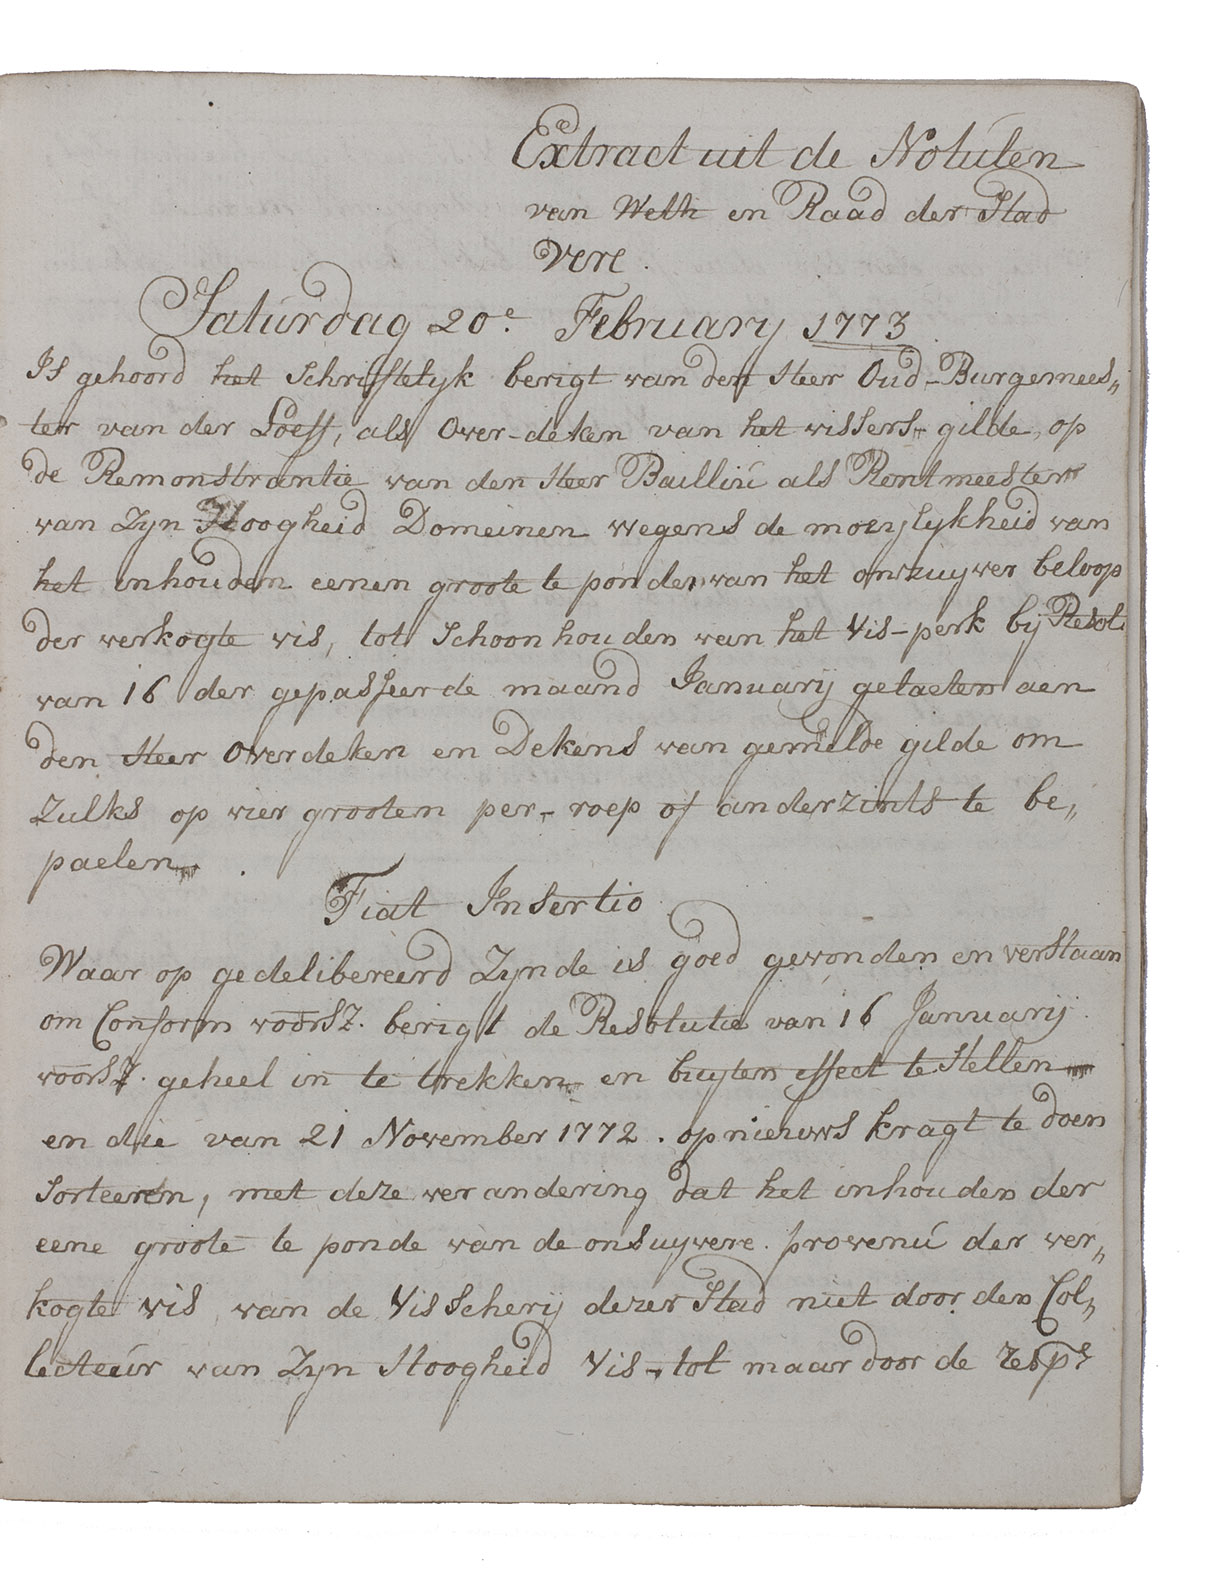 Extract uit de Notulen
van Weth en Raad der Stad
Vere.
Saturdag 20e. February 1773
Is gehoord het Schriftelyk berigt van den Heer Oud-Burgemees„
ter van der Loeff, als Over-deken van het vissers-gilde, op
de Remonstrantie van den Heer Baillúi als Rentmeester
van Zyn Hoogheid Domeinen wegens de moeylykheid van
het inhouden eenen groote te ponde, van het onzuyver beloop
der verkogte vis, tot Schoonhouden van het Vis-perk bij Resol:
van 16 der gepasseerde maand Januarij gelaeten aen
den Heer Overdeken en Dekens van gemelde gilde om
Zulks op vier grooten per-roep of anderzints te be„
paelen.
Fiat Insertio
Waar op gedelibereerd Zynde is goed gevonden en verstaan
om Conform voorsz. berigt de Resolutie van 16 Januarij
voorsz. geheel in te trekken en buyten effect te Stellen
en die van 21 November 1772. opnieuws kragt te doen
Sorteeren, met deze verandering dat het inhouden der
eene groote te ponde van de onsuyvere provenú der ver„
kogte vis van de Visscherij dezer Stad niet door den Col„
lecteúr van Zyn Hoogheid Vis-tol maar door de resp: